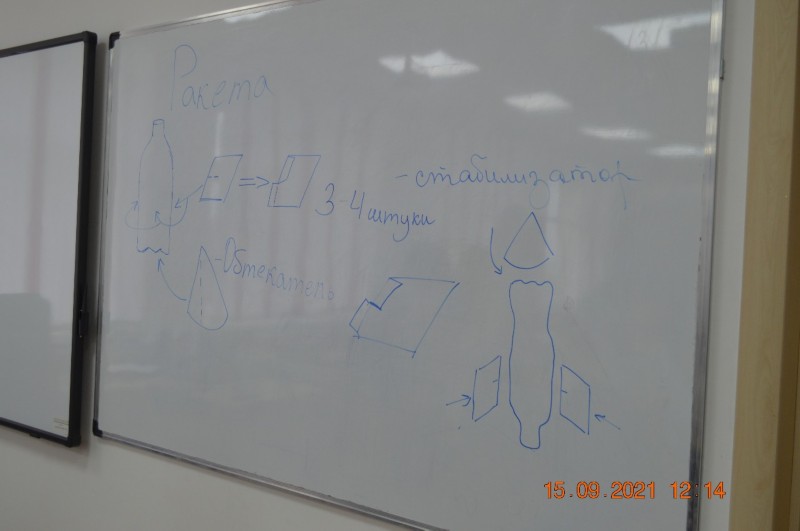 Ракета
- стабилизатор
3-4 штуки
- Обтекатель
15.09.2021 12:14